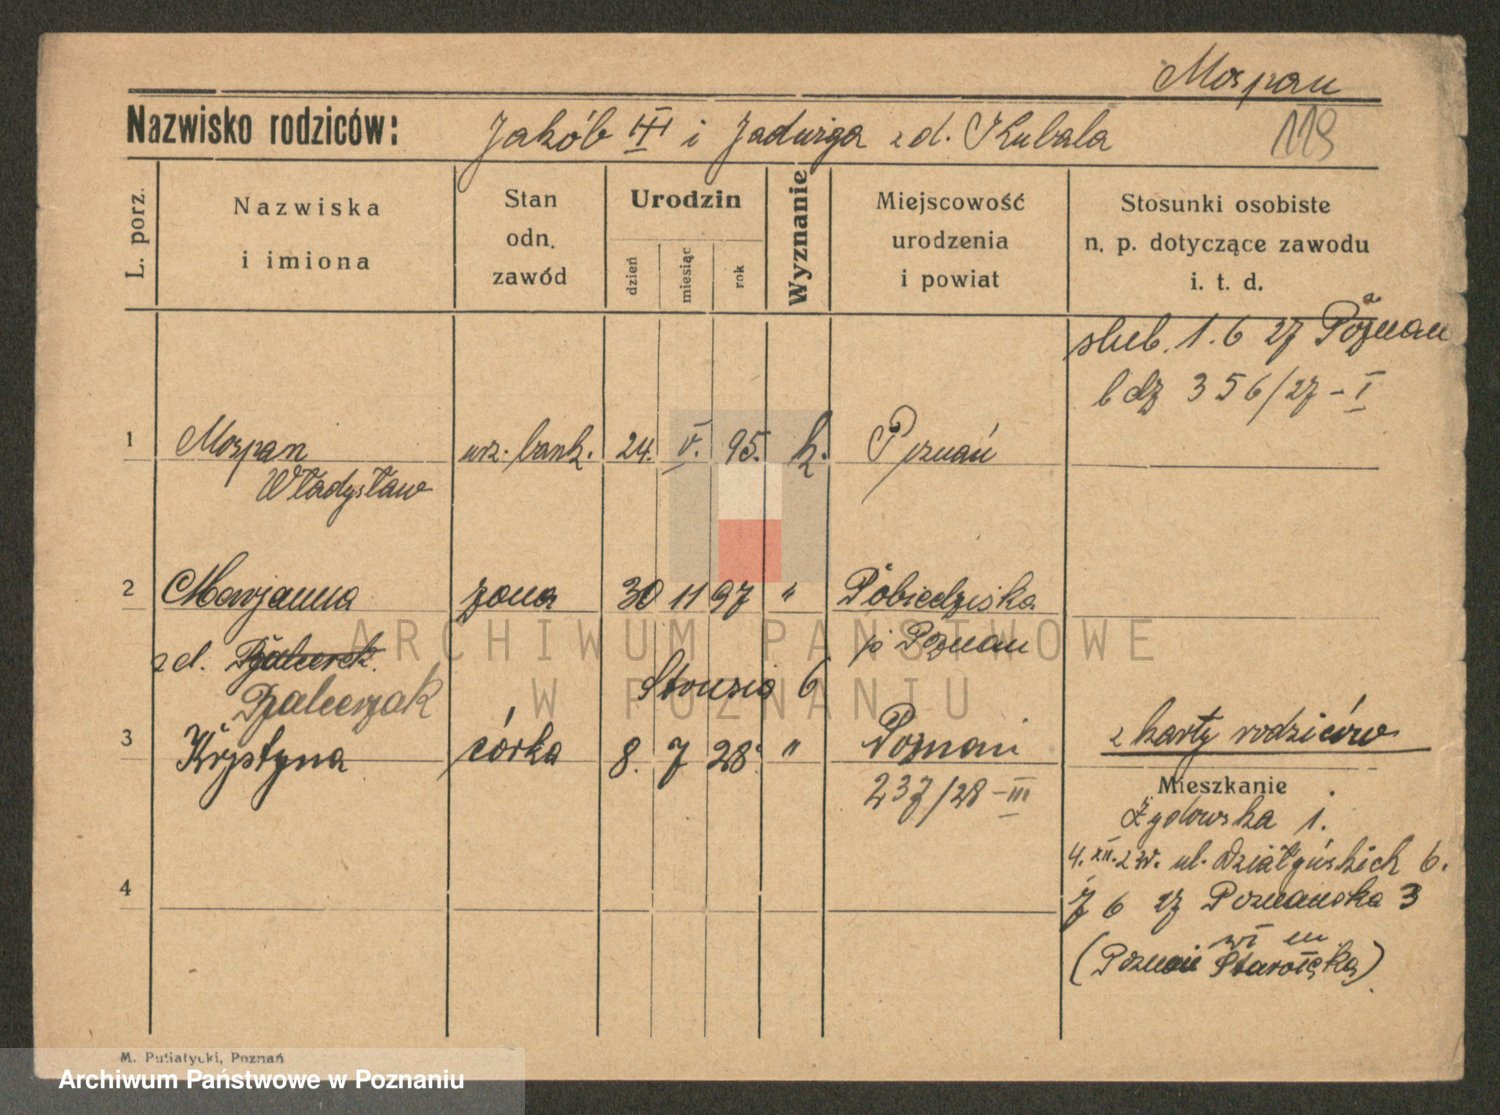 Mospan
Nazwisko rodziców: Jakób III i Jadwiga z d. Kubala
119
L. porz.
Nazwiska
i imiona
Stan
odn.
zawód
Urodzin
dzień
miesiąc
rok
Wyznanie
Miejscowość
urodzenia
i powiat
Stosunki osobiste
n. p. dotyczące zawodu
i. t. d.
slub. 1. 6 27 Poznań
l dz 356/27 - I
1 Mospan urz. bank. 24. V. 95. k. Poznań
Władysław
2 Marjanna żona 30 11 97 " Pobiedziska
z d. p Poznań
Szalczak
6
3 Krystyna córka 8. 7 28. " Poznań
237/28 - III
z karty rodziców
Mieszkanie
Żydowska 1.
4. XII. ul. Działyńskich 6.
7 6 27 Poznańska 3
(Poznań Starołęka)
4
M. Putiatycki, Poznań
ARCHIWUM PAŃSTWOWE
W POZNANIU
Archiwum Państwowe w Poznaniu